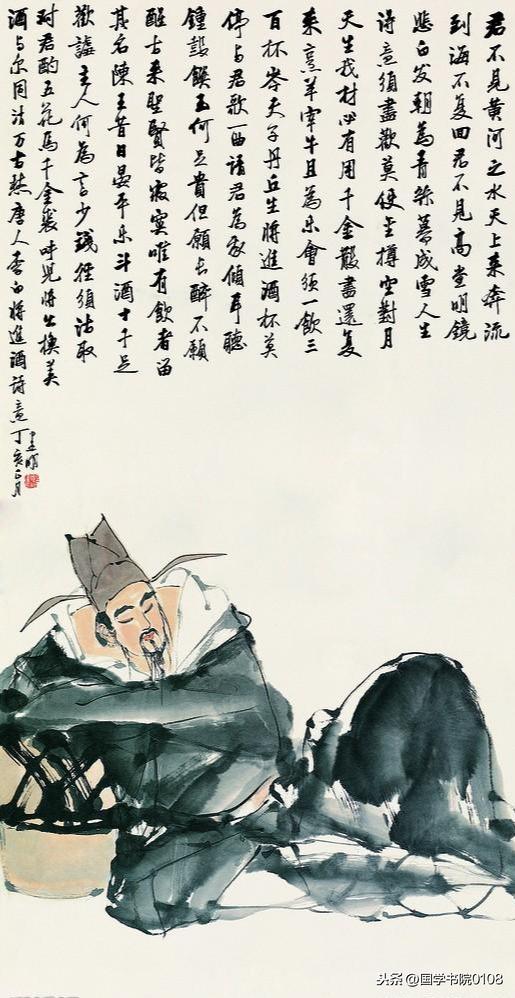 君不見黄河之水天上来奔流
到海不复回君不見高堂明鏡
悲白发朝為青絲暮成雪人生
诗意須盡歡莫使金樽空對月
天生我材必有用千金散盡還复
来烹羊宰牛且為乐會须一飲三
百杯岑夫子丹丘生將進酒杯莫
停与君歌一曲请君為我倾耳聽
鐘鼓饌玉何足貴但願长醉不願
醒古来聖賢皆寂寞唯有飲者留
其名陳王昔日宴平乐斗酒十千
歡謔主人何為言少錢径须沽取
对君酌五花馬千金裘呼児將出換美
酒与尔同沽万古愁唐人李白將進酒诗意丁亥正月
头条 @国学书院0108